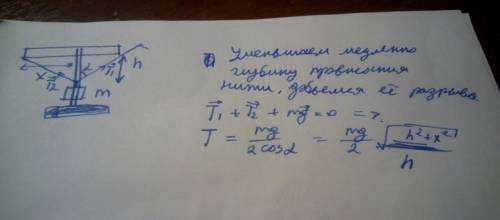 α
h
x
T⃗₂
T⃗₁
m
Уменьшаем медленно
глубину провисания
нити, добьемся её разрыва
T⃗₁ + T⃗₂ + mg⃗ = 0 =>
T = mg / (2 cos α) = mg / 2 · √(h² + x²) / h